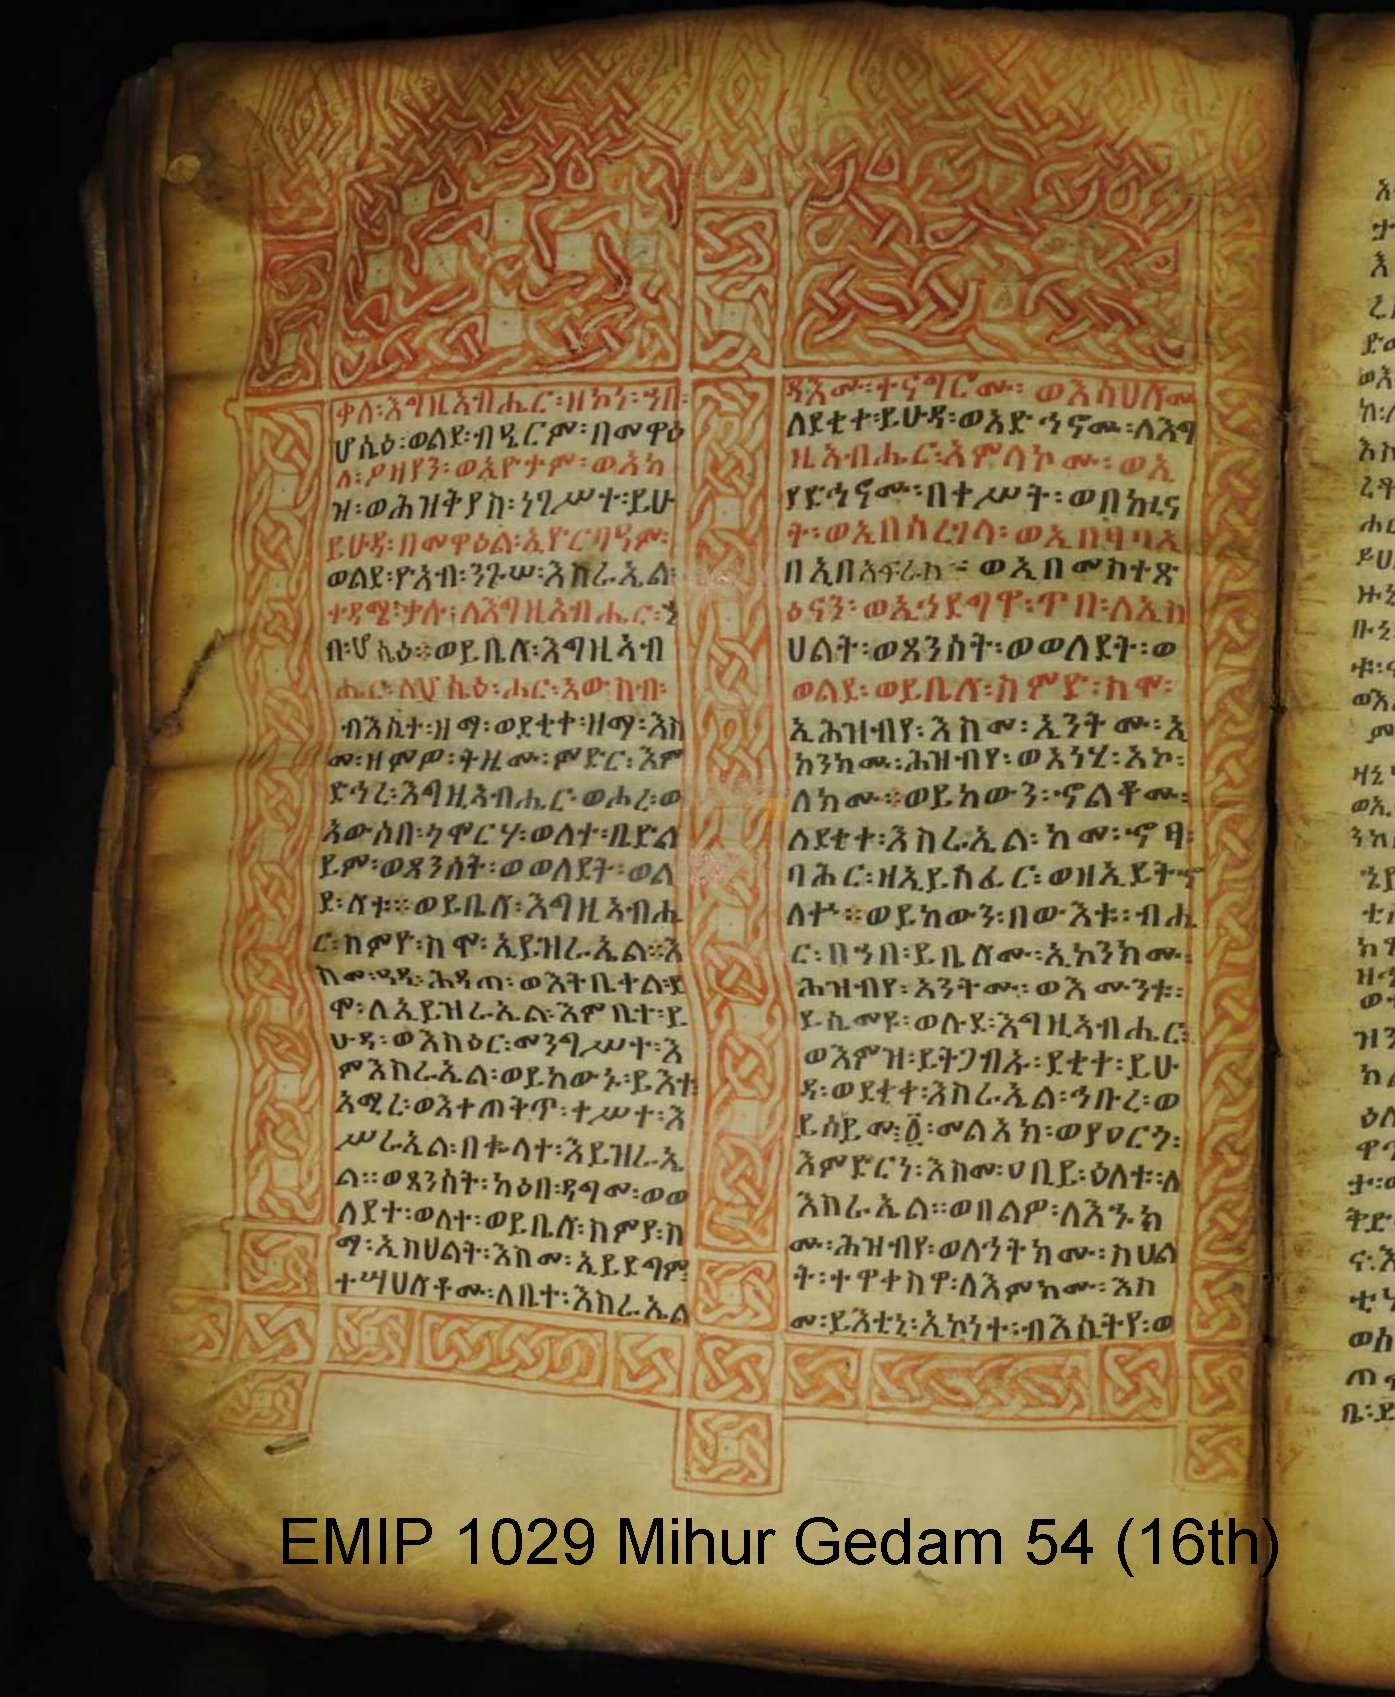 ቃለ፡እግዚአብሔር፡ዘኮነ፡ኀበ፡
ሆሴዕ፡ወልደ፡ብዒርም፡በመዋዕ
ለ፡ዖዝያን፡ወኢዮታም፡ወአካ
ዝ፡ወሕዝቅያስ፡ነገሥተ፡ይሁ
ይሁዳ፡በመዋዕል፡ኢዮርባዓም፡
ወልደ፡ዮአብ፡ንጉሠ፡እስራኤል፡
ተዳሜ፡ቃሉ፡ለእግዚአብሔር፡ኀ
በ፡ሆሴዕ።ወይቤሎ፡እግዚአብ
ሔር፡ለሆሴዕ፡ሑር፡አውስብ፡
ብእሲተ፡ዘማ፡ወደቂቀ፡ዘማ፡እስ
መ፡ዘምዎ፡ትዜሙ፡ምድር፡እም
ድኅረ፡እግዚአብሔር፡ወሖረ፡ወ
አውሰበ፡ጎሞርሃ፡ወለተ፡ቤድል
ይም፡ወጸንሰት፡ወወለደት፡ወል
ደ፡ሎቱ።ወይቤሎ፡እግዚአብሔ
ር፡ስምዮ፡ስሞ፡ኢይዝራኤል።እ
ስመ፡ዓዲ፡ሕዳጠ፡ወእትቤቀል፡ደ
ሞ፡ለኢይዝራኤል፡እምቤተ፡ይ
ሁዳ፡ወእስዕር፡መንግሥተ፡እ
ምእስራኤል፡ወይከውኑ፡ይእተ
አሚረ፡ወእቀጠቅጥ፡ቀሥተ፡እ
ሥራኤል፡በቈላተ፡እይዝራኤ
ል።ወጸንስት፡ካዕበ፡ዳግመ፡ወወ
ለደተ፡ወለተ፡ወይቤሎ፡ስምያ፡ስ
ማ፡ኢስሀልት፡እስመ፡ኢይደግም፡
ተሣህሎቶሙ፡ለቤተ፡እስራኤል
ዳእሙ፡ተናግሮሙ፡ወእስሀሎሙ
ለደቂቀ፡ይሁዳ፡ወአድኅኖሙ፡ለእግ
ዚአብሔር፡አምላኮሙ፡ወኢ
ያድኅኖሙ፡በቀሥት፡ወበኲና
ት፡ወኢበሰረገላ፡ወኢበፃባኢ
በኢበአፍራስ።ወኢበመስተጽ
ዕናን፡ወኢኃደግዋ፡ጥበ፡ለኢስ
ሀልት፡ወጸንስት፡ወወለደት፡ወ
ወልደ፡ወይቤሎ፡ስምዮ፡ስሞ፡
ኢሕዝብየ፡እስመ፡ኢንትሙ፡ኢ
ከንክሙ፡ሕዝብየ፡ወአነሂ፡አኮ፡
ለክሙ።ወይከውን፡ኖልቆሙ፡
ለደቂቀ፡እስራኢል፡ከመ፡ኖፃ፡
ባሕር፡ዘኢይሰፈር፡ወዘኢይትኖ
ለቍ።ወይከውን፡በውእቱ፡ብሔ
ር፡በኀበ፡ይቤሎሙ፡ኢኮንክሙ፡
ሕዝብየ፡አንትሙ፡ወእሙንቱ፡
ይሲመዩ፡ወሉደ፡እግዚአብሔር፡
ወእምዝ፡ይትጋብኡ፡ደቂቀ፡ይሁ
ዳ፡ወደቂቀ፡እስራኤል፡ኅቡረ፡ወ
ይሰይሙ፡፩፡መልአከ፡ወያዐርጉ፡
እምድርነ፡እስመ፡ዐቢይ፡ዕለቱ፡ለ
እስራኤል።ወበልዎ፡ለእኁክ
ሙ፡ሕዝብየ፡ወለኅትክሙ፡ስሀል
ት፡ተዋቀስዋ፡ለእምክሙ፡እስ
መ፡ይእቲኒ፡ኢኮነተ፡ብእሲትየ፡ወ
EMIP 1029 Mihur Gedam 54 (16th)